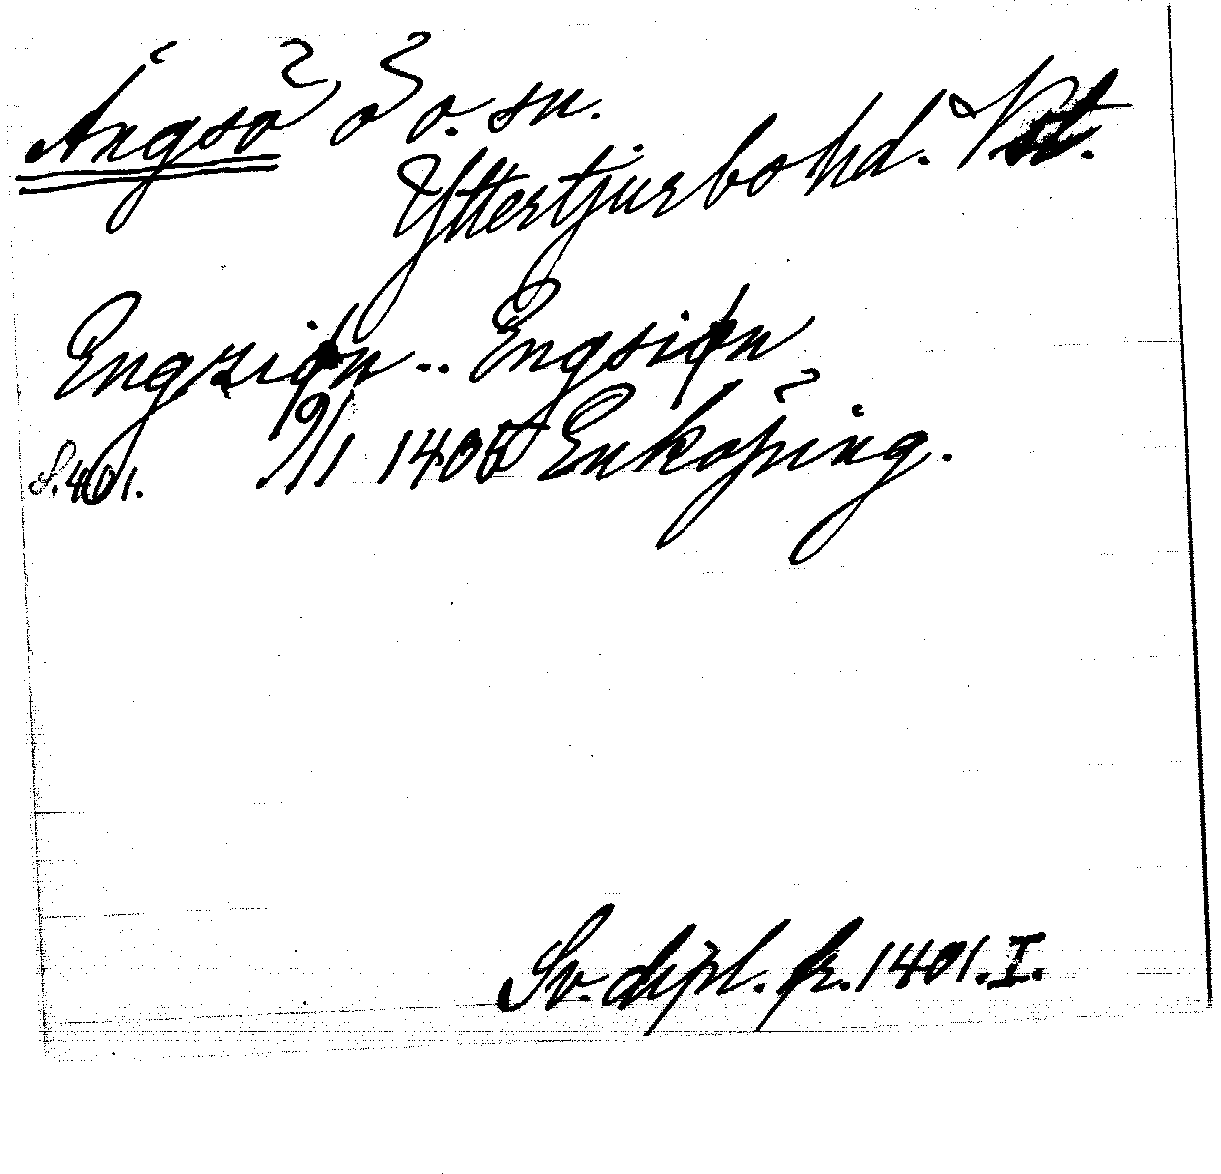 Ängsö, ö o. sn.
Yttertjurbo hd. Vstl.
Engxiøn .. Engsiøn
S. 401. 9/1 1405 Enköping.
Sv. dipl. fr. 1401. I.